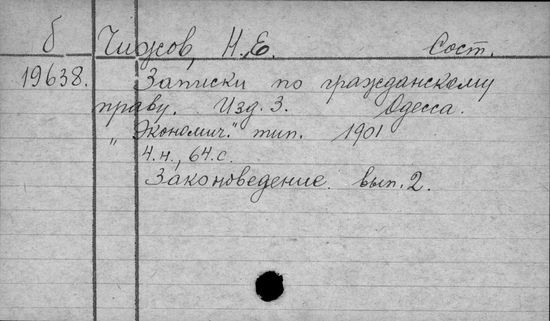 б Чижов, Н.Е. Сост.
19638. Записки по гражданскому
праву. Изд. 3. Одесса.
"Экономич." тип. 1901
4.н., 64.с.
Законоведение. вып. 2.